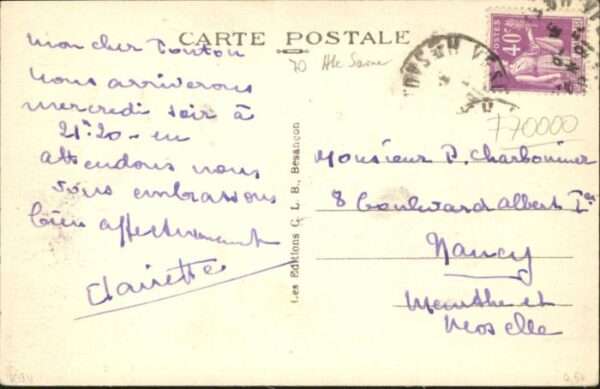 CARTE POSTALE
mon cher Tonton
nous arriverons
mercredi soir à
21h20 - en
attendant nous
vous embrassons
bien affectueusement
Clairette
Les Editions C. L. B., Besançon
70 Hte Saone
POSTES
40c
770000
Monsieur P. Charbonnier
8 boulevard Albert Ier
Nancy
Meurthe et
Moselle